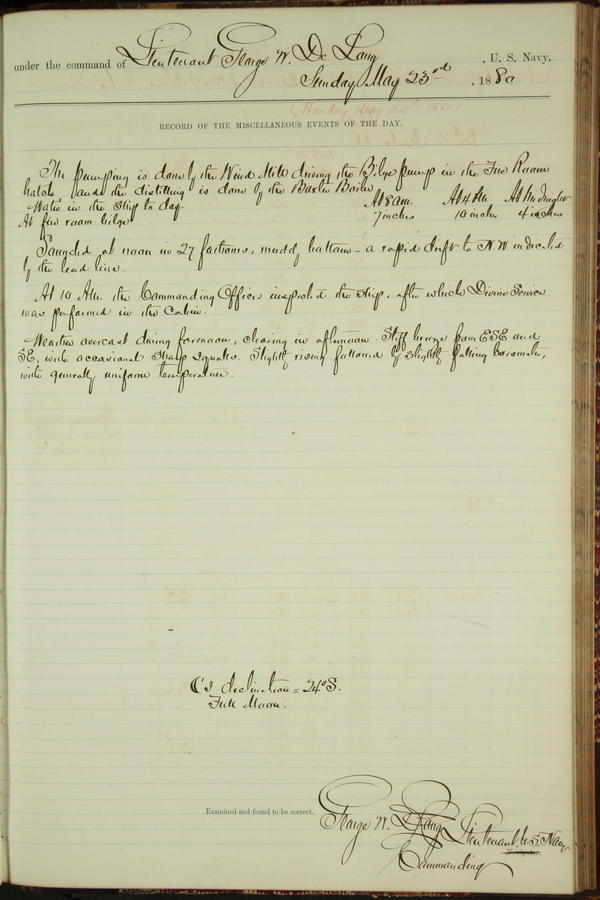 under the command of Lieutenant George W. De Long, U. S. Navy,
Sunday May 23rd, 1880
(Monday May 24th 1880)
RECORD OF THE MISCELLANEOUS EVENTS OF THE DAY.
The pumping is done by the Wind Mill driving the Bilge pump in the Fire Room
hatch and the distilling is done by the Baxter Boiler
Water in the Ship to day. At 8 am. At 4 PM. At Midnight
At fire room bilge 7 inches 10 inches 4 inches
Sounded at noon in 27 fathoms, muddy bottom - a rapid drift to NW indicated
by the lead line.
At 10 AM. the Commanding Officer inspected the ship, after which Divine Service
was performed in the Cabin.
Weather overcast during forenoon, clearing in afternoon. Stiff breeze from ESE and
SE, with occasional sharp squalls. Slightly rising followed by slightly falling barometer,
with generally uniform temperature.
☾'s declination = 24° S.
Full Moon.
Examined and found to be correct.
George W. De Long Lieutenant U.S. Navy
Navigator.
Commanding